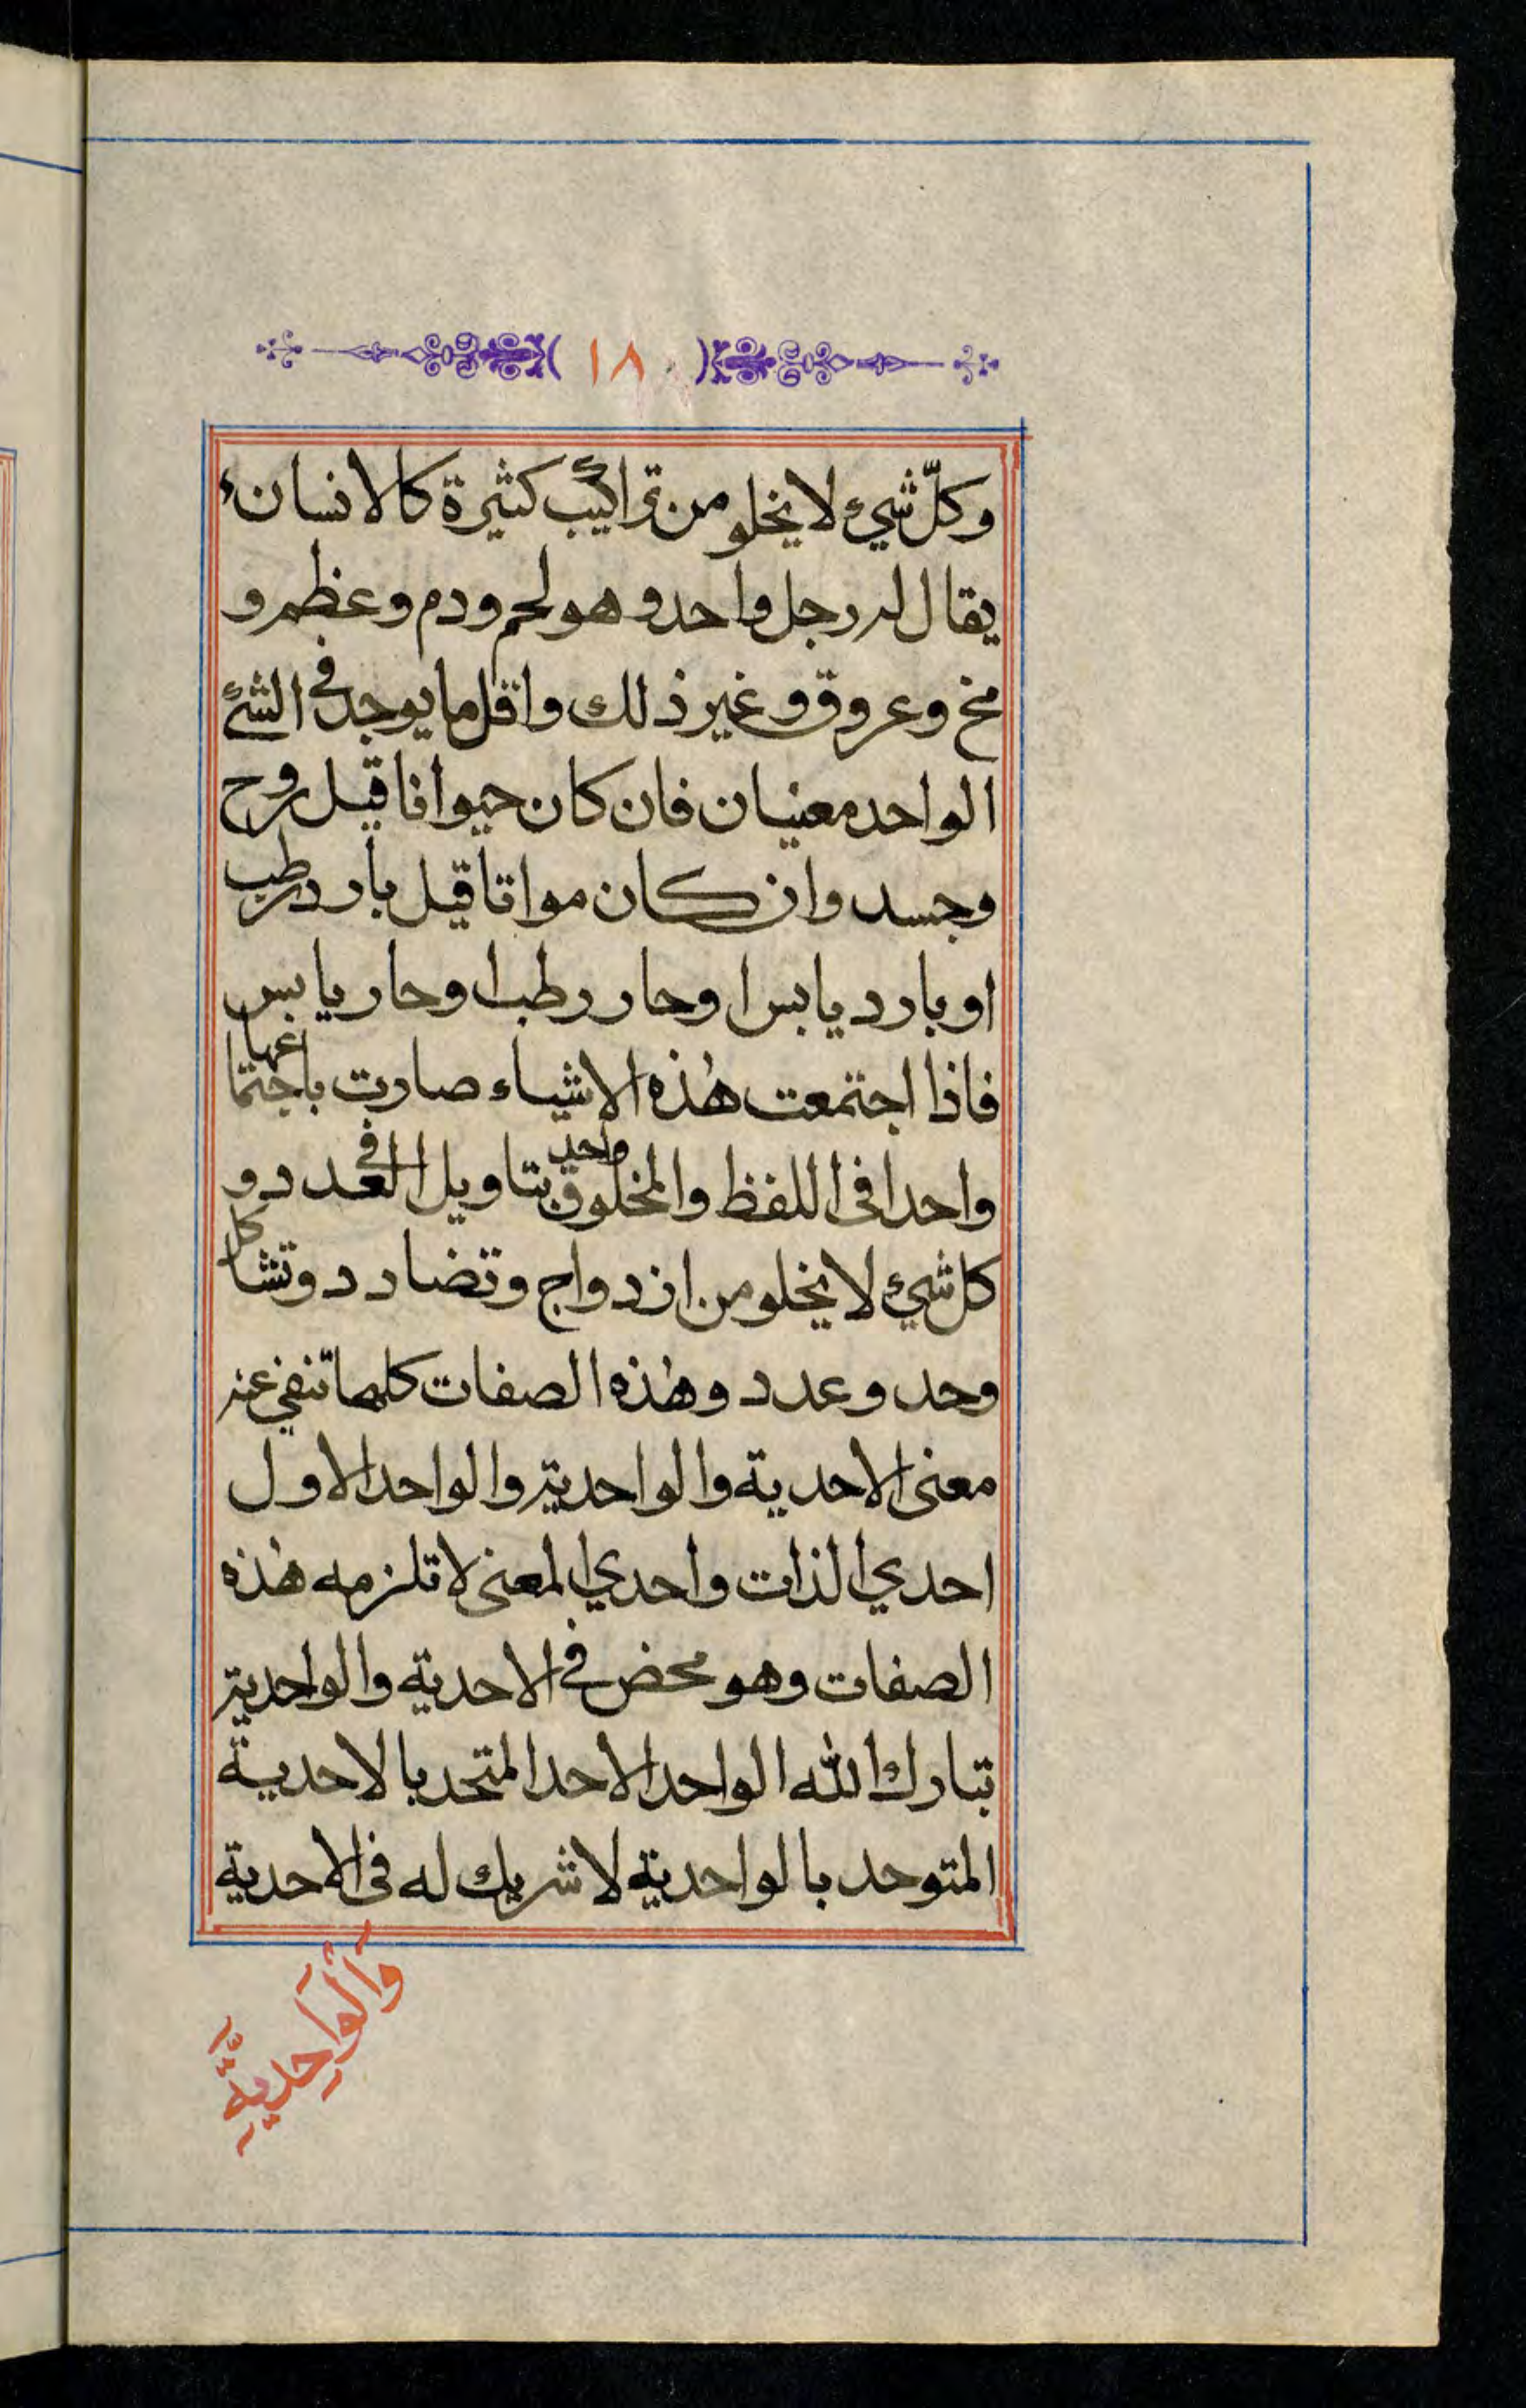 ١٨
وكلّ شيء لا يخلو من تراكيب كثيرة كالانسان
يقال له رجل واحد وهو لحم ودم وعظم و
مخ وعروق وغير ذلك واقل ما يوجد في الشئ
الواحد معنيان فان كان حيوانا قيل روح
وجسد وان كان مواتا قيل بارد رطب
او بارد يابس او حار رطب او حار يابس
فاذا اجتمعت هٰذه الاشياء صارت باجتماعها
واحدا فى اللفظ والمخلوق واحد بتاويل في العدد و
كل شيء لا يخلو من ازدواج وتضادد وتشاكل
وحد وعدد وهٰذه الصفات كلها تنفي عنه
معنى الاحدية والواحدية والواحد الاول
احدي الذات واحدي المعنى لا تلزمه هٰذه
الصفات وهو محض في الاحدية والواحدية
تبارك الله الواحد الاحد المتحد بالاحدية
المتوحد بالواحدية لا شريك له فى الاحدية
وَالْوَاحِدِيَّةِ